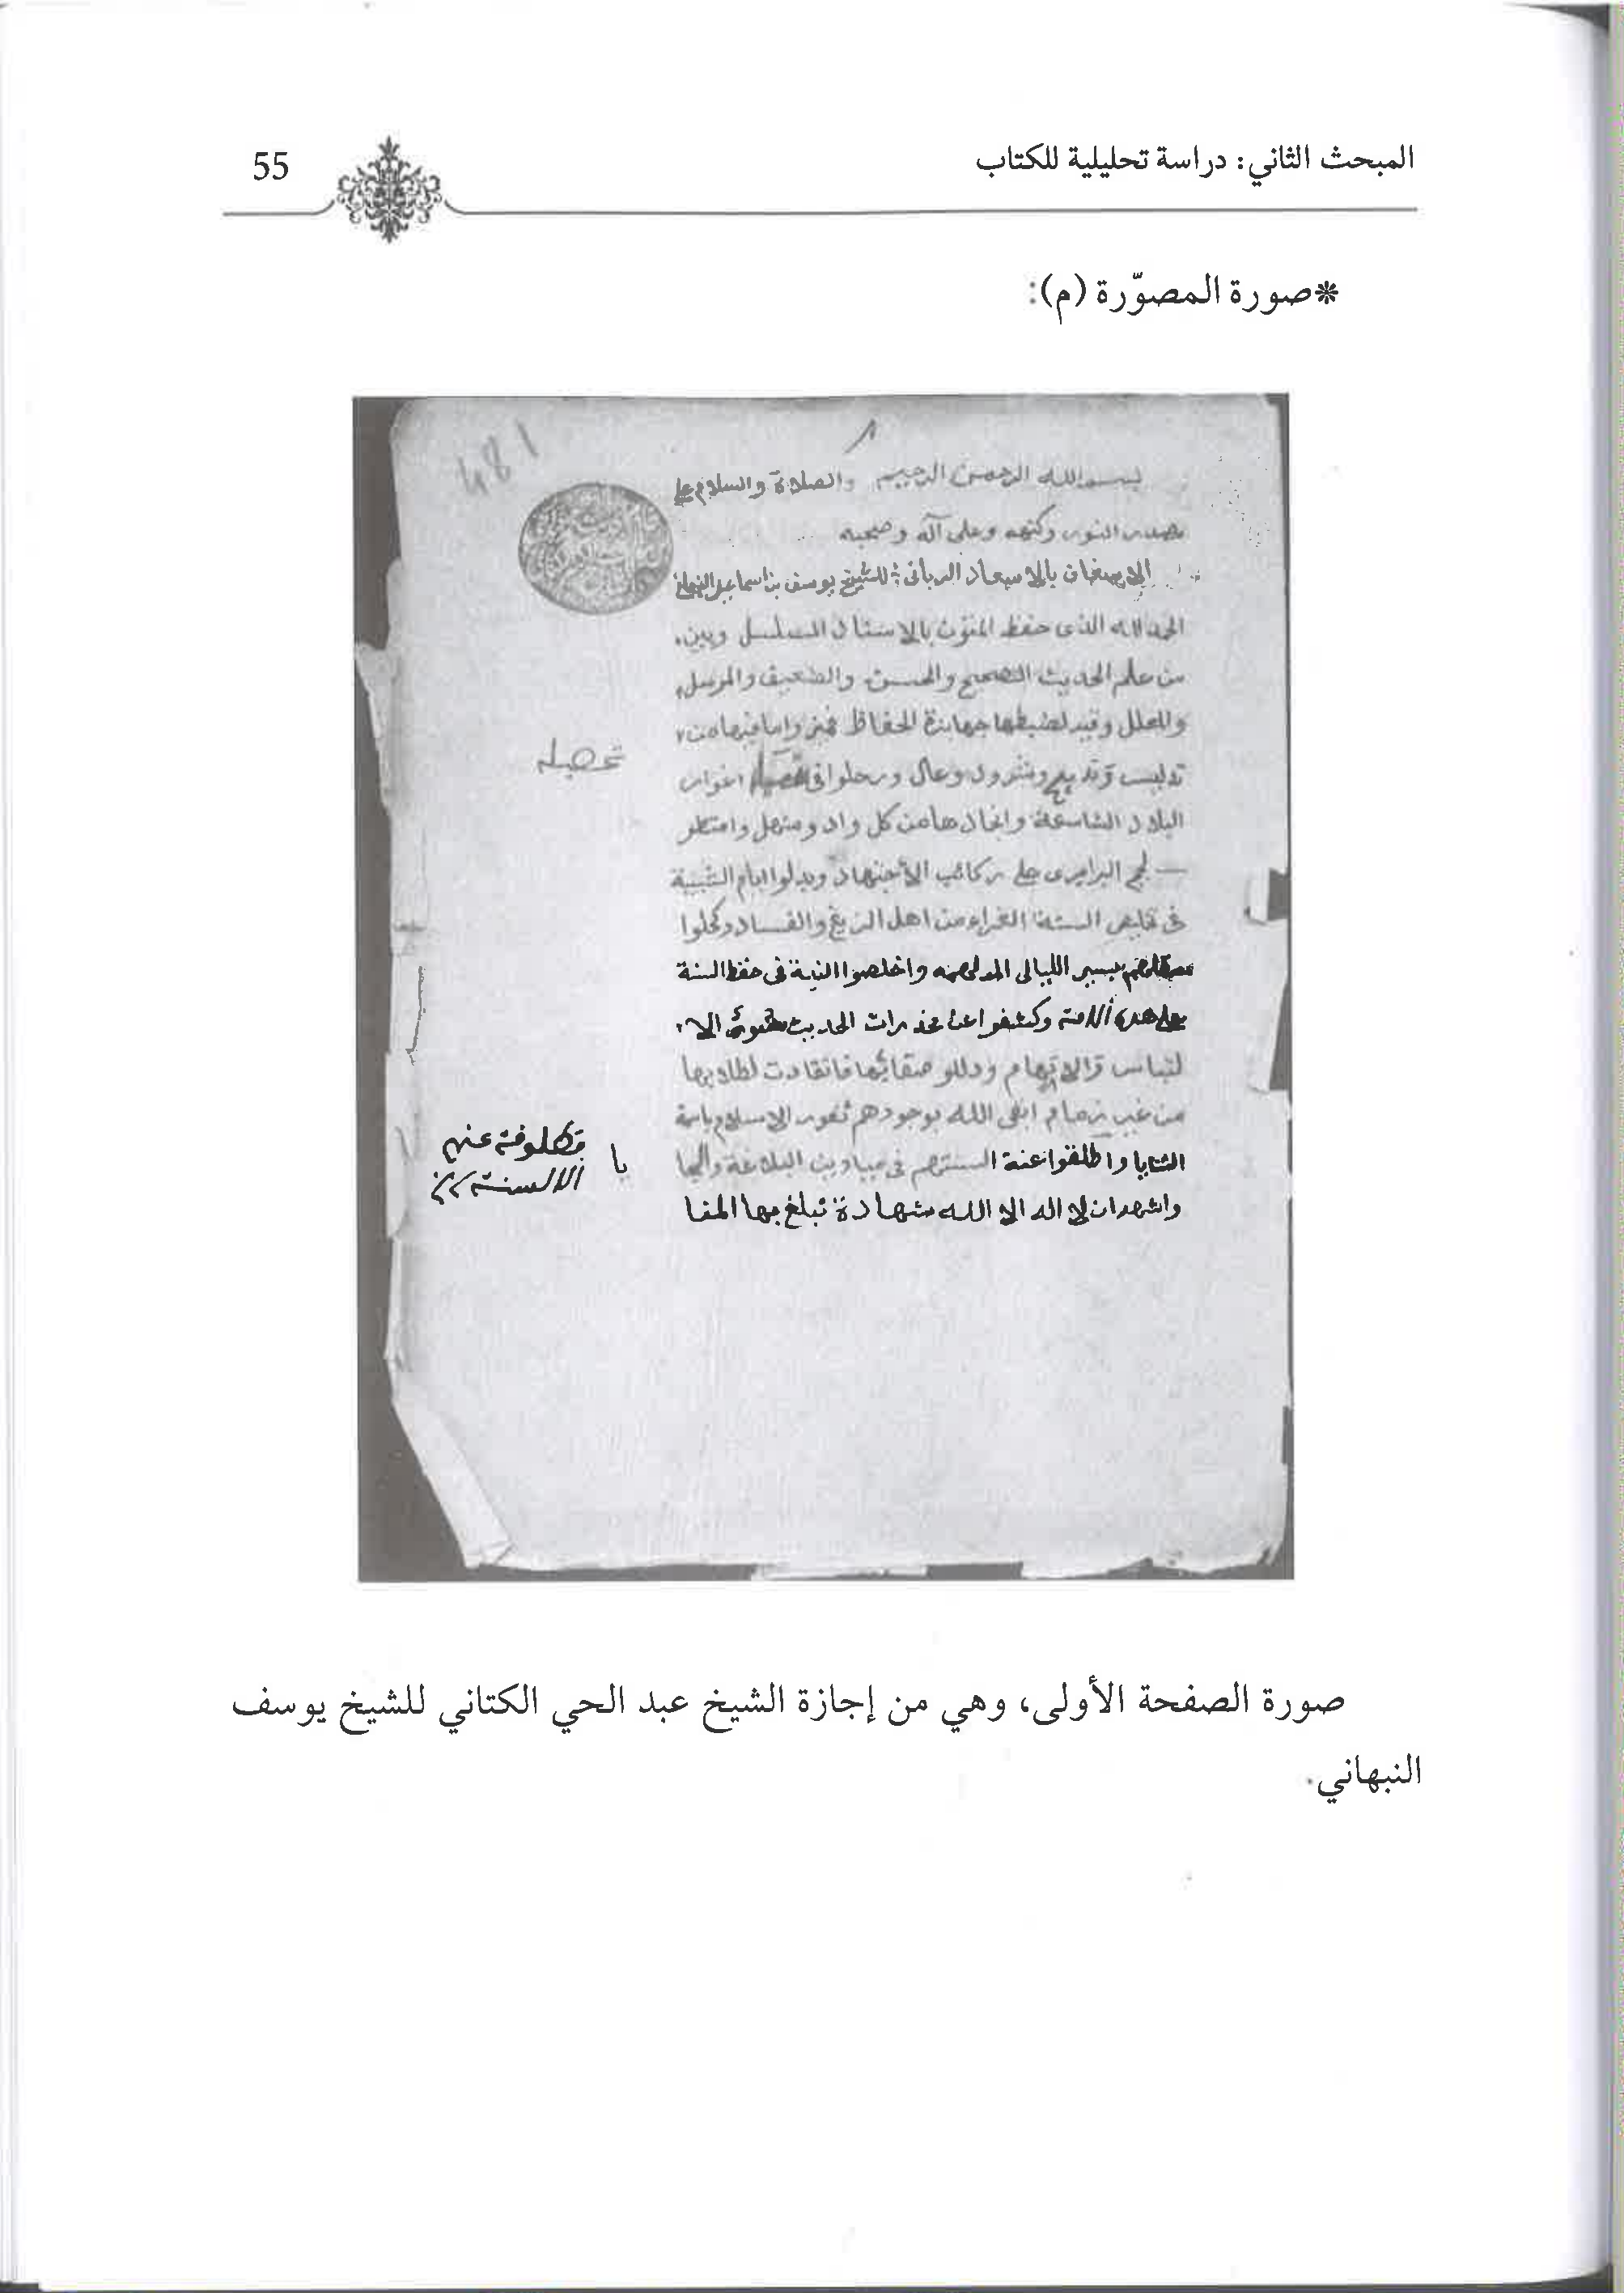 المبحث الثاني: دراسة تحليلية للكتاب
55
*صورة المصوّرة (م):
481
بسم الله الرحمن الرحيم والصلاة والسلام على
مصدر النور وكنهه وعلى آله وصحبه
بالاسعاد الرباني للشيخ يوسف بن اسماعيل النبهاني
الحمد لله الذي حفظ المتون بالاسناد المسلسل وبين
من علم الحديث الصحيح والحسن والضعيف والمرسل
والمعلل وقيد لضبطها جهابذة الحفاظ فميزوا ما فيها من
تدليس وتدبيج ونزول وعال ورحلوا في اغوار
تحصيله
البلاد الشاسعة وانجادها من كل واد ومنهل وامتطو
لجج البراري على ركائب الأجتهاد وبذلوا ايام الشبيبة
في تخليص السنة الغراء من اهل الزيغ والفساد وكحلوا
بسير الليالي المدلهمه واخلصوا النية في حفظ السنة
على هذه الامة وكشفوا عن مخدرات الحديث الا
لتباس والاتهام وذللو فانقادت لطلابها
من غير زمام ابقى الله بوجودهم ثغور الاسلام باسمة
الثنايا واطلقوا عنة السنتهم في ميادين البلاغة
الالسنة
واشهد ان لا اله الا الله شهادة تبلغ بها المنا
صورة الصفحة الأولى، وهي من إجازة الشيخ عبد الحي الكتاني للشيخ يوسف
النبهاني.